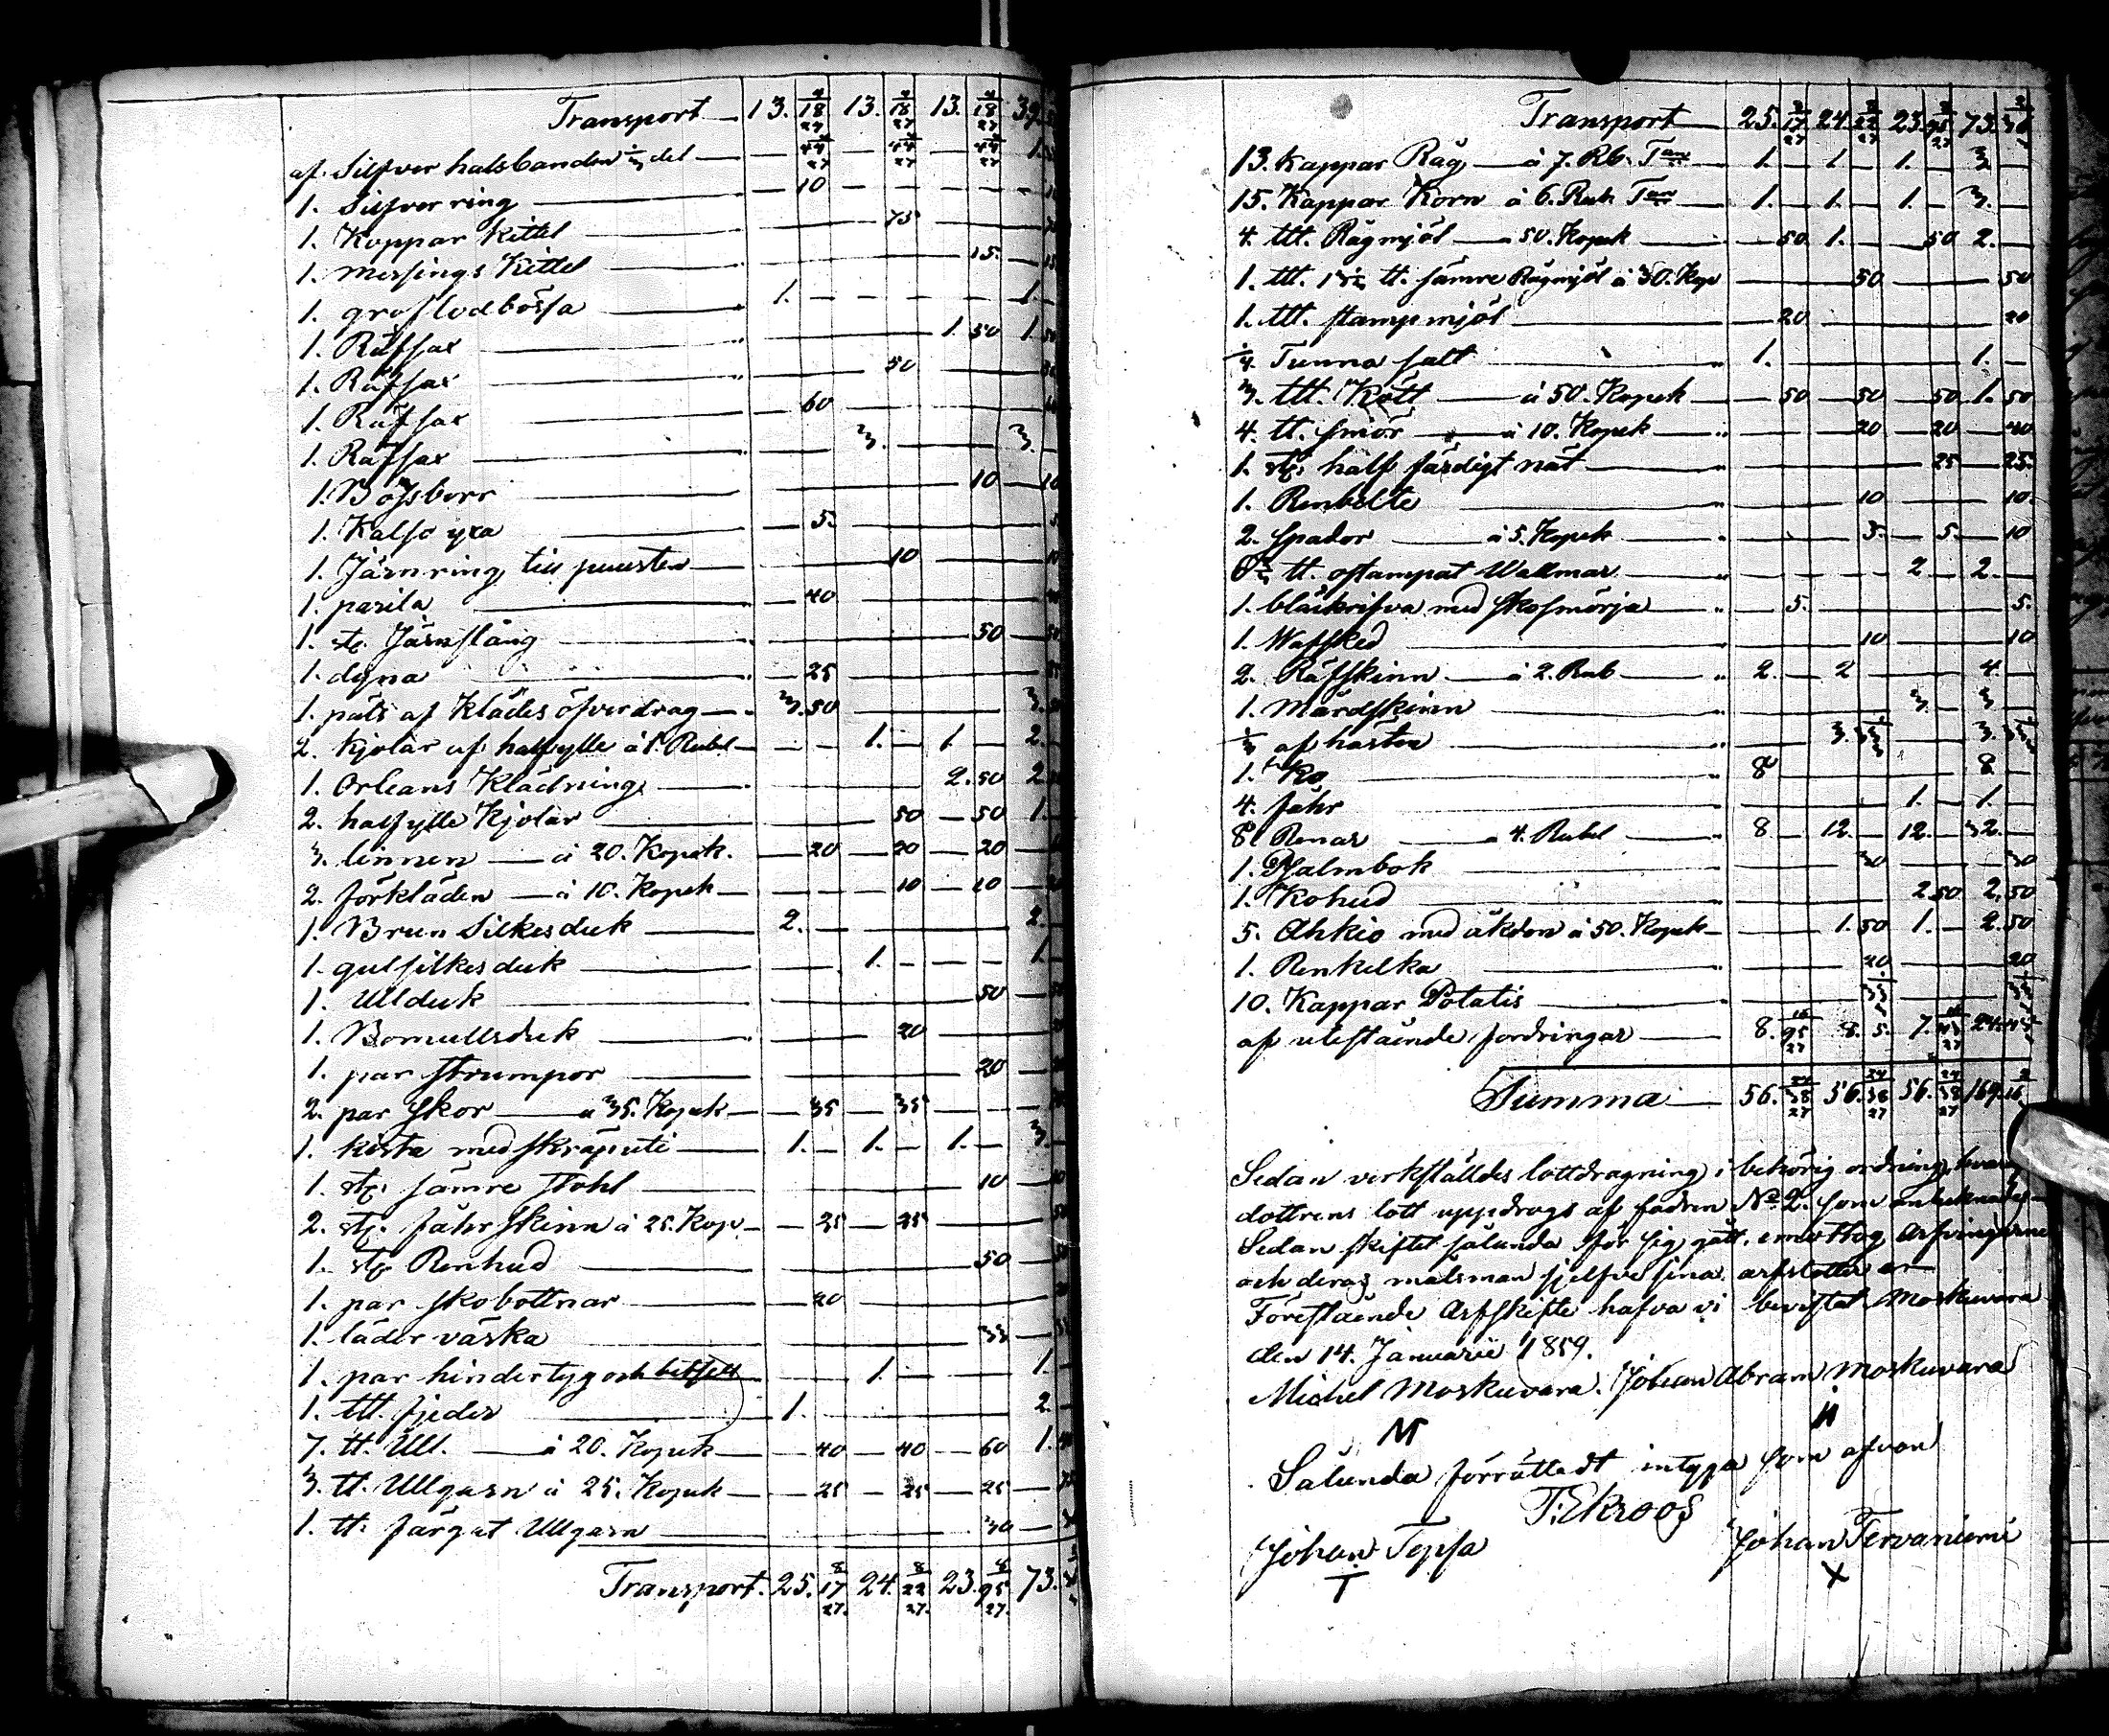 Transport 13. 4/18/27 13. 4/18/27 13. 4/18/27 39.
af Silfver halsbanden 1/3 del — 44/27 — 44/27 — 44/27 1.
1. Silfver ring — 10
1. Koppar kittel — 75
1. messings Kittel — 15.
1. grof lodbössa 1. — 1.
1. Räfsax 1. 50 1. 50
1. Räfsax 50
1. Räfsax 60
1. Räfsax 3. 3.
1. Bössborr 10 10
1. Kalso yxa 5. 5
1. Järnring till puusten 10 10
1. parila 40
1. st. Järnstång 50 50
1. dyna 25
1. päls af klädes öfverdrag 3. 50 3.
2. kjolar af halfylle à 1. Rubel 1. — 1. — 2.
1. Orleans Klädning 2. 50 2.
2. halfylle Kjolar 50 — 50 1.
3. linnen — à 20. Kopek. — 20 — 20 — 20
2. förkläden — à 10. Kopek — 10 — 10
1. Brun Silkesduk 2. 2.
1. gul silkesduk 1. 1.
1. Ullduk 50
1. Bomullsduk 20
1. par strumpor 20
2. par skor — à 35. Kopek — 35 — 35
1. kista med skräputi 1. — 1. — 1. — 3.
1. st. sämre stohl 10 10
2. st. fåhrskinn à 25. Kop. — 25 — 25 50
1. st. Renhud 50
1. par skobottnar 20
1. läder väska 35
1. par hindertyg och betsel 1. 1.
1. ltt. fjeder 1. 2.
7. tt. Ull. — à 20. Kopek — 40 — 40 — 60 1.
3. tt. Ullgarn à 25. Kopek — 25 — 25 — 25
1. tt. färgat Ullgarn 30
Transport. 25. 8/17/27. 24. 8/22/27. 23. 8/95/27. 73.
Transport 25. 17/27 24. 22/27 23. 95/27 73.
13. Kappar Råg — à 7. Rb. Tan 1. — 1. — 1. — 3.
15. Kappar Korn à 6. Rub. Tan 1. — 1. — 1. — 3. —
4. ltt. Rågmjöl — 50. Kopek 50 1. 50 2. —
1. ltt. tt. sämre Rågmjöl à 50. Kop 50 50
1. ltt. stampmjöl 20 20
1/4 Tunna salt 1. 1. —
3. ltt. Kött — à 50. Kopek — 50 — 50 — 50 1. 50
4. tt. smör — à 10. Kopek — 20 — 20 — 40
1. st. half färdigt nät 25 — 25.
1. Renbelte 10 10.
2. spador — à 5. Kopek 5. — 5. — 10
tt. ostampat Wallmar 2 — 2. —
1. med skosmörja 5. 5.
1. 10 10
2. Räfskinn — à 2. Rub 2. — 2 4. —
1. Mårdskinn 3. — 3 —
1/3 af hästen 3. 33 1/3 3. 33 1/3
1. Ko 8 8 —
4. fåhr 1. — 1. —
8. Renar — 4. Rubel 8 — 12. — 12. — 32. —
1. Psalmbok 30 30
1. Kohud 2 50 2. 50
5. Ahkio med åkdon à 50. Kopek — 1. 50 1. — 2. 50
1. Renkelka 20 20
10. Kappar Potatis 33 33
af utestående fordringar 8. 95/27 8. 5. 7. 24.
Summa 56. 24/38/27 56. 24/38/27 56. 24/38/27 169.
Sedan verkställdes lottdragning i behörig ordning,
dottrens lott uppdrogs af fadren No 2. som
Sedan skiftet sålunda för sig gått, emottog Arfvingarne
och deras målsman sjelfve sina arfslotter
Förestående Arfskifte hafva vi bevistat Moskuvara
den 14. Januarii 1859.
Michel Moskuvara. Johan Abram Moskuvara
M
Sålunda förrättadt intyga som ofvan
T. Ekroos
Johan Tepsa Johan Tervaniemi
T X